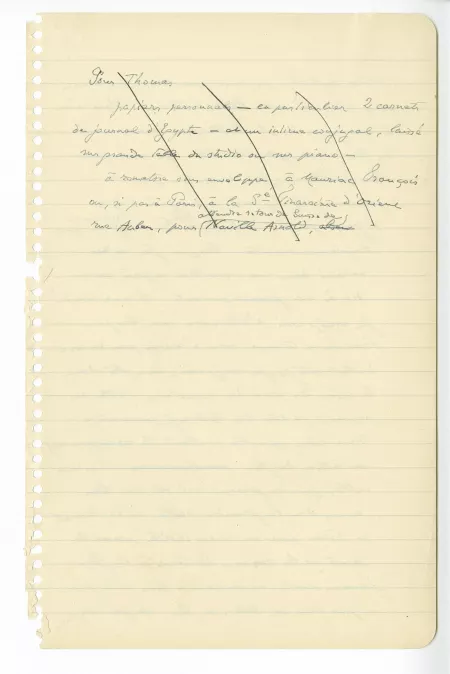 Pour Thomas
papiers personnels — en particulier 2 carnets
de journal d'Egypte — et un intime conjugal, laissé
sur grande table de studio ou sur piano —
à remettre sous enveloppe à Mauriac François
ou, si pas à Paris, à la Sté Financière d'Orient
attendre retour de Suisse de
rue Auber, pour Naville Arnold,